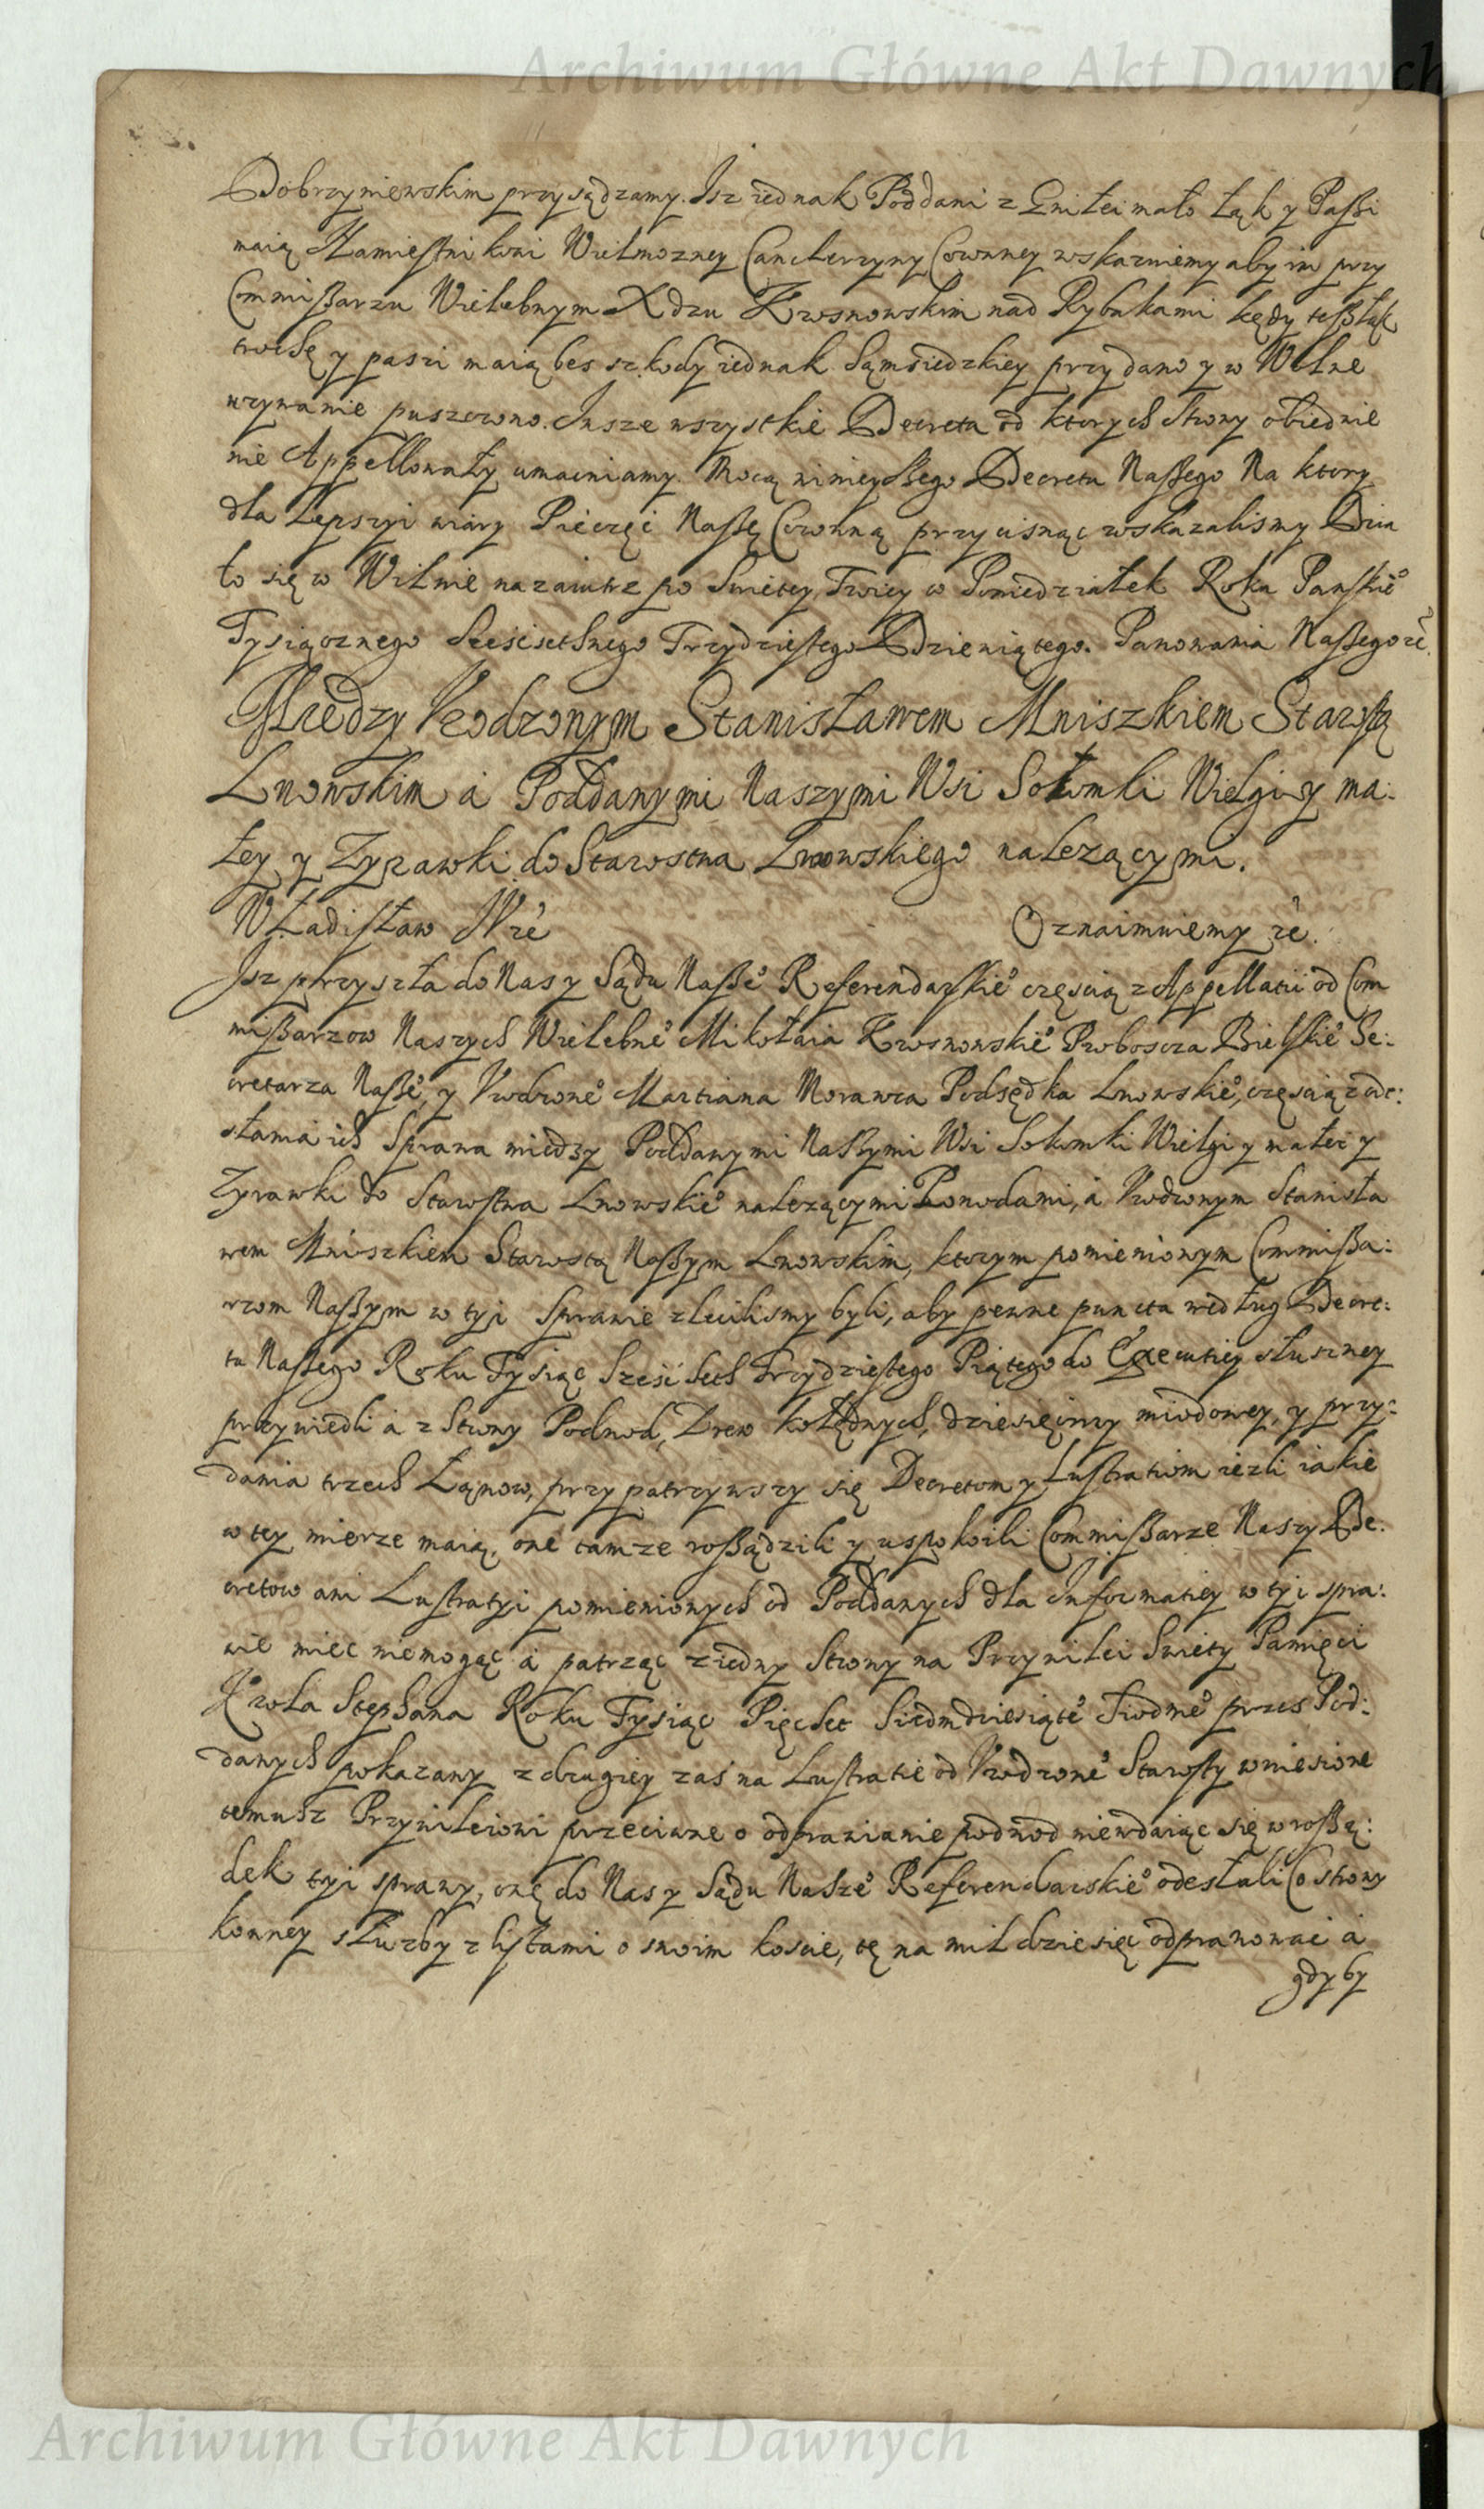 Archiwum Główne Akt Dawnych
Dobrzyniewskim przysądzamy. Isz iednak Poddani z Gniłei mało łąk y Passi
maią Namiestnikowi Wielmozney Canclerzyny Coronney wskazuiemy aby im przy
Commissarzu Wielebnym Xdzu Krosnowskim nad Rybakami kędy tesz łąk
trochę y paszi maią bes szkody iednak Sąmsiedzkiey przydano y w Wolne
uzywanie puszczono. Insze wszystkie Decreta od ktorych Strony obiedwie
nie Appellowały umacniamy. Mocą ninieyssego Decretu Nassego Na ktory
dla Lepszyi wiary Pieczęć Nassę Coronną przycisnąc wskazalismy Dzia
ło się w Wilnie nazaiutrz po Swietey Troicy w Poniedziałek Roku Panskie°
Tysiącznego Sześćsethnego Trzydziestego Dziewiątego. Panowania Nassego rc̃.
Między Urodzonym Stanisławem Mniszkiem Starostą
Lwowskim a Poddanymi Naszymi Wsi Sokolniki Wielgi y ma:
łey y Zyrawki do Starostwa Lwowskiego nalezącymi.
Władisław IV rc̃ Oznaimuiemy rc̃.
Isz przyszła do Nas y Sądu Nasse° Referendarskie° częscią z Appellatii od Com
missarzow Naszych Wielebne° Mikołaia Krosnowskie° Proboscza Bielskie° Se:
cretarza Nasse°, y Urodzone° Marciana Morawca Podsędka Lwowskie°, częscią z ode:
słania ich Sprawa miedzy Poddanymi Nassymi Wsi Sokolniki Wielgi y małei y
Zyrawki do Starostwa Lwowskie° nalezącymi Powodami, a Urodzonym Stanisła
wem Mniszkiem Starostą Nassym Lwowskim, ktorym pomienionym Commissa:
rzom Nassym w tyi Sprawie zlecilismy byli, aby pewne puncta według Decre:
tu Nassego Roku Tysiąc Sześć Seth Trzydziestego Piątego do Executiey słuszney
przywiedli a z Strony Podwod, Drew kolędnych, dziesięciny miodowey, y przy:
dania trzech Łąnow, przypatrzywszy się Decretom y Lustratiom iezli iakie
w tey mierze maią, one tamze rossądzili y uspokoili Commissarze Naszy De:
cretow ani Lustratyi pomienionych od Poddanych dla Informatiey w tyi spra:
wie miec niemogąc a patrząc z iedny Strony na Przywilei Swięty Pamięci
Krola Stephana Roku Tysiąc Pięcset Siedmdziesiąte° Siodme° przes Pod:
danych pokazany z drugiey zaś na Lustratie od Urodzone° Starosty wniesione
temusz Przywileiowi przeciwne o odprawianie podwod niewdaiąc się w rossą:
dek tyi sprawy, onę do Nas y Sądu Nasze° Referendarskie° odesłali Co strony
konney słuzby z listami o swoim koscie, tę na mil dziesięc odprawowac a
gdyby
Archiwum Główne Akt Dawnych